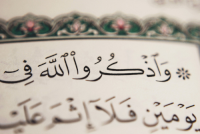 ۞ وَٱذْكُرُوا۟ ٱللَّهَ فِىٓ
يَوْمَيْنِ فَلَآ إِثْمَ عَلَيْ